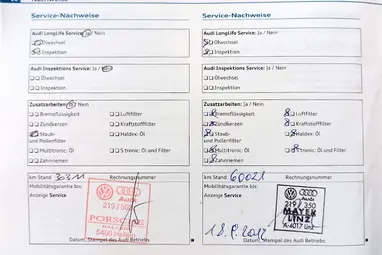 Service-Nachweise
Audi LongLife Service: Ja / Nein
Ölwechsel
Inspektion
Audi Inspektions Service: Ja / Nein
Ölwechsel
Inspektion
Zusatzarbeiten: Ja / Nein
Bremsflüssigkeit
Luftfilter
Zündkerzen
Kraftstofffilter
Staub- und Pollenfilter
Haldex: Öl
Multitronic: Öl
S tronic: Öl und Filter
Zahnriemen
km Stand
Rechnungsnummer
Mobilitätsgarantie bis:
Anzeige Service
Audi
219 / 502
PORSCHE
Datum, Stempel des Audi Betriebs.
Service-Nachweise
Audi LongLife Service: Ja / Nein
Ölwechsel
Inspektion
Audi Inspektions Service: Ja / Nein
Ölwechsel
Inspektion
Zusatzarbeiten: Ja / Nein
Bremsflüssigkeit
Luftfilter
Zündkerzen
Kraftstofffilter
Staub- und Pollenfilter
Haldex: Öl
Multitronic: Öl
S tronic: Öl und Filter
Zahnriemen
km Stand 60021
Rechnungsnummer
Mobilitätsgarantie bis:
Anzeige Service
Audi
219 / 350
MAYER
LINZ
A-4017 Linz
18.9.2012
Datum, Stempel des Audi Betriebs.